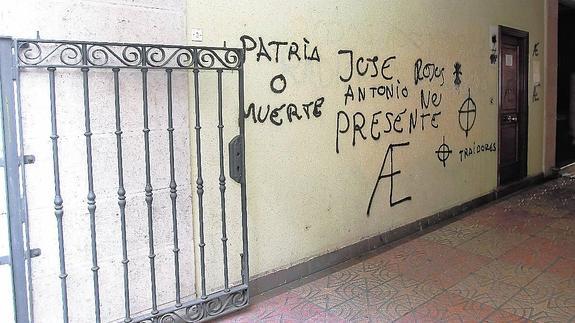 PATRIA
O
MUERTE
JOSE
ANTONIO
PRESENTE
ROJOS
NO
Æ
TRAIDORES
Æ
Æ